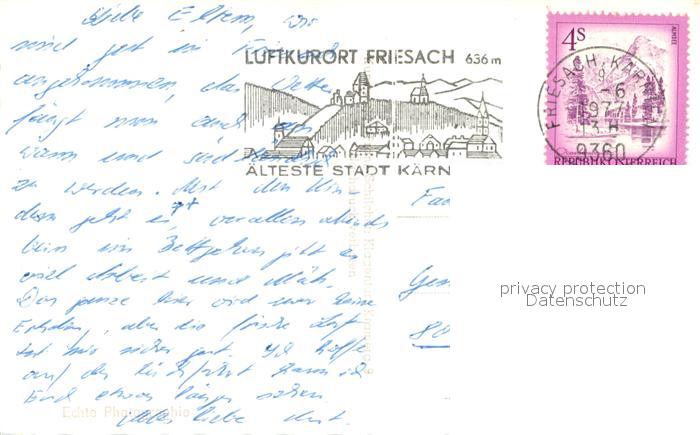 Liebe Eltern, wir
sind gut in
angekommen, das Wetter
fängt nun auch an
warm und
zu werden. Mit den Kin-
dern geht es, vor allem abends
beim ins Bettgehen gibt es
viel Arbeit und Müh.
Das ganze hier wird zwar keine
Erholung, aber die frische Luft
tut mir sicher gut. Ich hoffe
auf der Rückfahrt kann ich
Euch etwas länger sehen
Alles Liebe
LUFTKURORT FRIESACH 636 m
ÄLTESTE STADT KÄRN
4 S
ALMSEE
FRIESACH, KÄRN
9.
-6
1977
13 H
9360
REPUBLIK ÖSTERREICH
Fa
Gen
80
privacy protection
Datenschutz
Echte Photographie